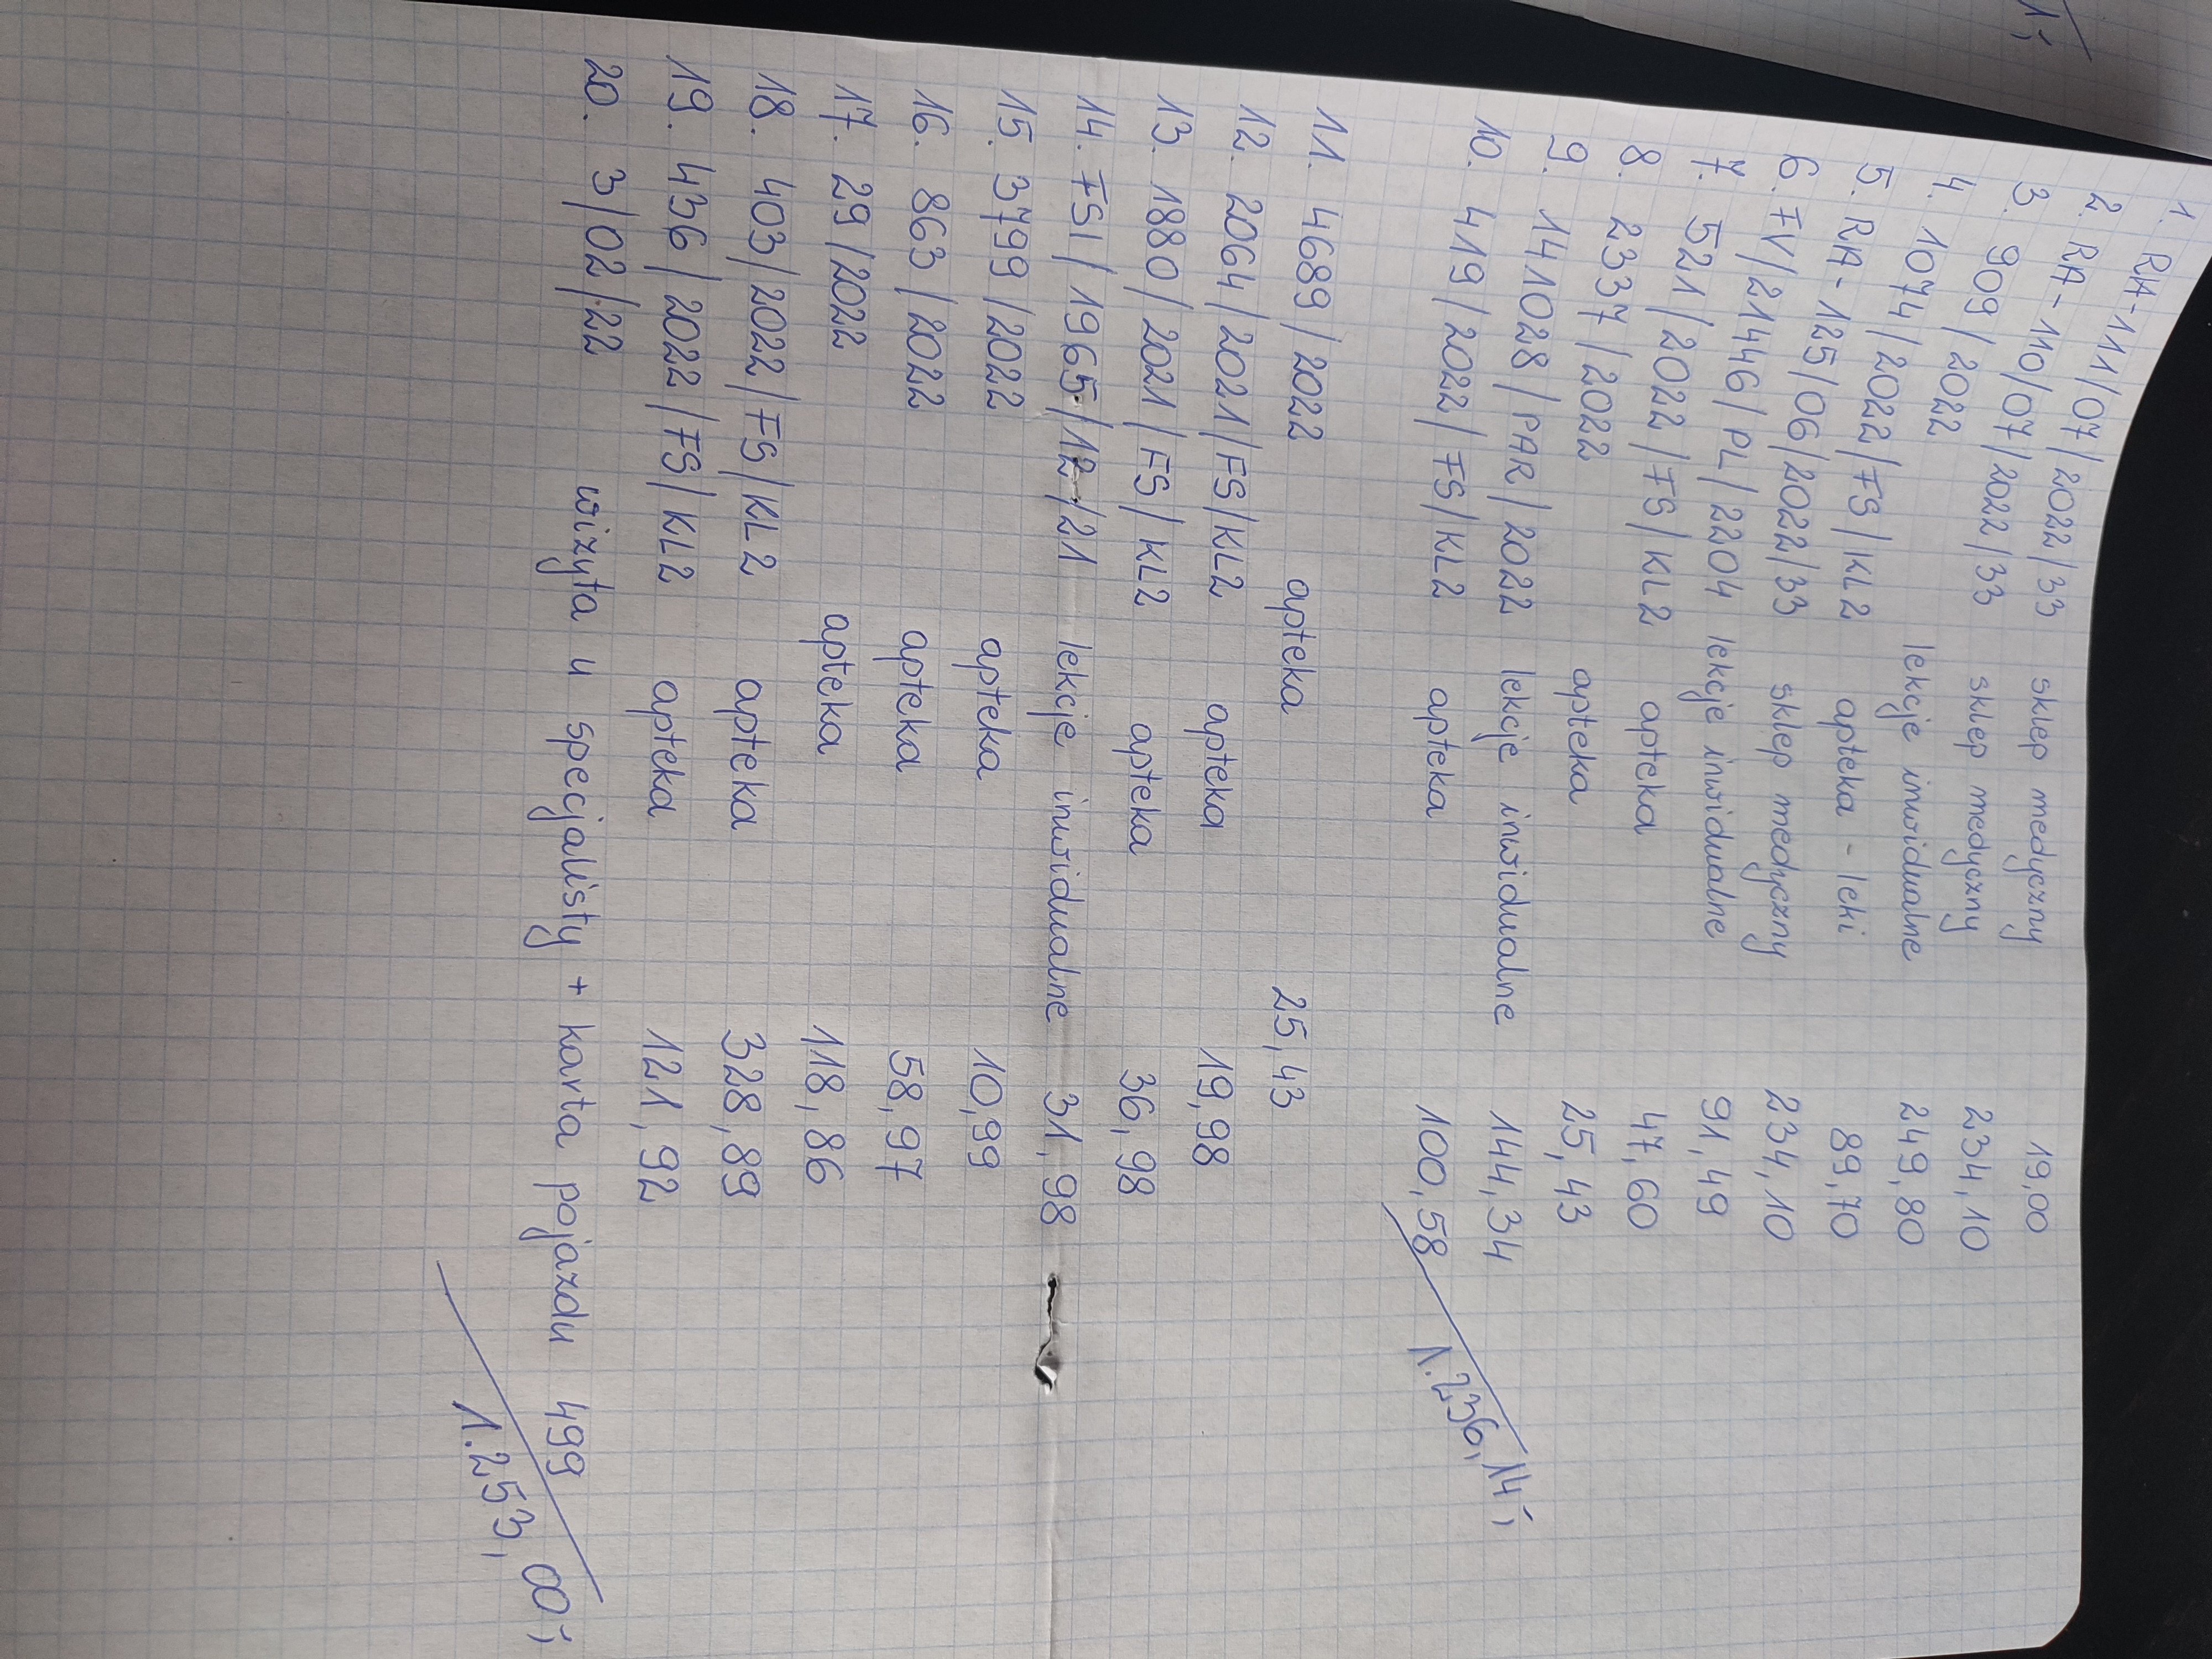 1. RA-111/07/2022/33 sklep medyczny 19,00
2. RA-110/07/2022/33 sklep medyczny 234,10
3. 909/2022 lekcje inwidualne 249,80
4. 1074/2022/FS/KL2 apteka - leki 89,70
5. RA-125/06/2022/33 sklep medyczny 234,10
6. FV/21446/PL/2204 lekcje inwidualne 91,49
7. 521/2022/FS/KL2 apteka 47,60
8. 2337/2022 apteka 25,43
9. 141028/PAR/2022 lekcje inwidualne 144,34
10. 419/2022/FS/KL2 apteka 100,58
1.236,14;
11. 4689/2022 apteka 25,43
12. 2064/2021/FS/KL2 apteka 19,98
13. 1880/2021/FS/KL2 apteka 36,98
14. FSI/1965/12/21 lekcje inwidualne 31,98
15. 3799/2022 apteka 10,99
16. 863/2022 apteka 58,97
17. 29/2022 apteka 118,86
18. 403/2022/FS/KL2 apteka 328,89
19. 436/2022/FS/KL2 apteka 121,92
20. 3/02/22 wizyta u specjalisty + karta pojazdu 499
1.253,00;